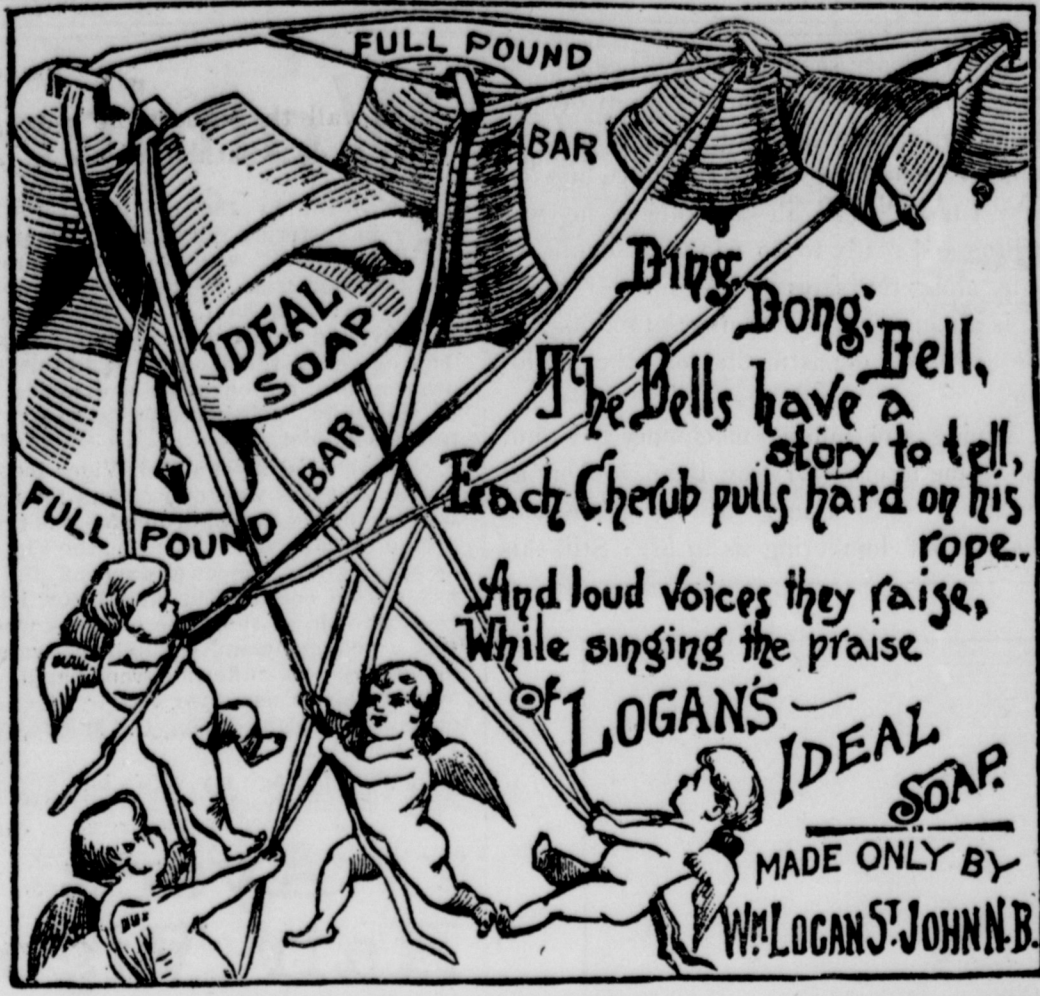 FULL POUND
BAR
IDEAL
SOAP
FULL POUND
BAR
Ding,
Dong,
Bell,
The Bells have a
story to tell,
Each Cherub pulls hard on his
rope.
And loud voices they raise,
While singing the praise
of LOGAN'S
IDEAL
SOAP.
MADE ONLY BY
WM LOGAN ST. JOHN N.B.